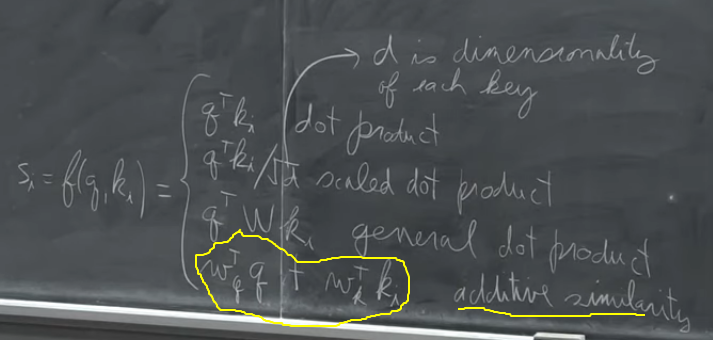 d is dimensionality
of each key
sᵢ = f(q, kᵢ) = {
qᵀkᵢ dot product
qᵀkᵢ/√d scaled dot product
qᵀ W kᵢ general dot product
w_qᵀ q + w_kᵀ kᵢ additive similarity